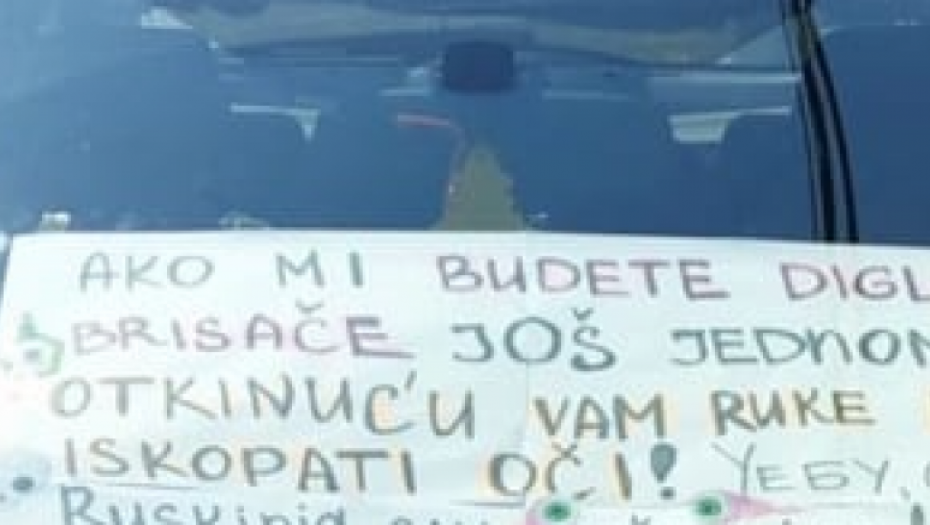 AKO MI BUDETE DIGL
BRISAČE JOŠ JEDNOM
OTKINUĆU VAM RUKE
ISKOPATI OČI! YEБУ,
Ruskinja